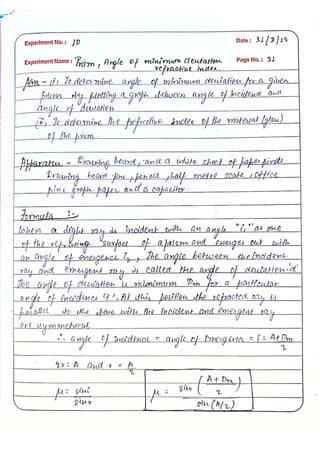 Experiment No. : 10 Date : 31/8/19
Experiment Name : Prism, Angle of minimum deviation Page No. : 31
refractive index.
Aim - (i) To determine angle of minimum deviation for a given
prism by plotting a graph between angle of incidence and
angle of deviation
(ii) To determine the refractive index of the material (glass)
of the prism.
Apparatus - Drawing board, and a white sheet of paper,
Drawing board pins, pencil, half metre scale, office
pins graph paper and a capacitor.
Formula :-
When a light ray is incident with an angle "i1" at one
of the refracting surface of a prism and emerges out with
an angle of emergence i2, The angle between the incident
ray and emergent ray is called the angle of deviation 'd'
The angle of deviation is minimum Dm for a particular
angle of incidence. At this position the refracted ray is
parallel to the base with the incident and emergent ray
are symmetrical
∴ angle of incidence = angle of emergence = i = A+Dm
2
2r = A and r = A
2
μ = sin i
sin r
μ = sin ( A + Dm
2 )
sin (A/2)